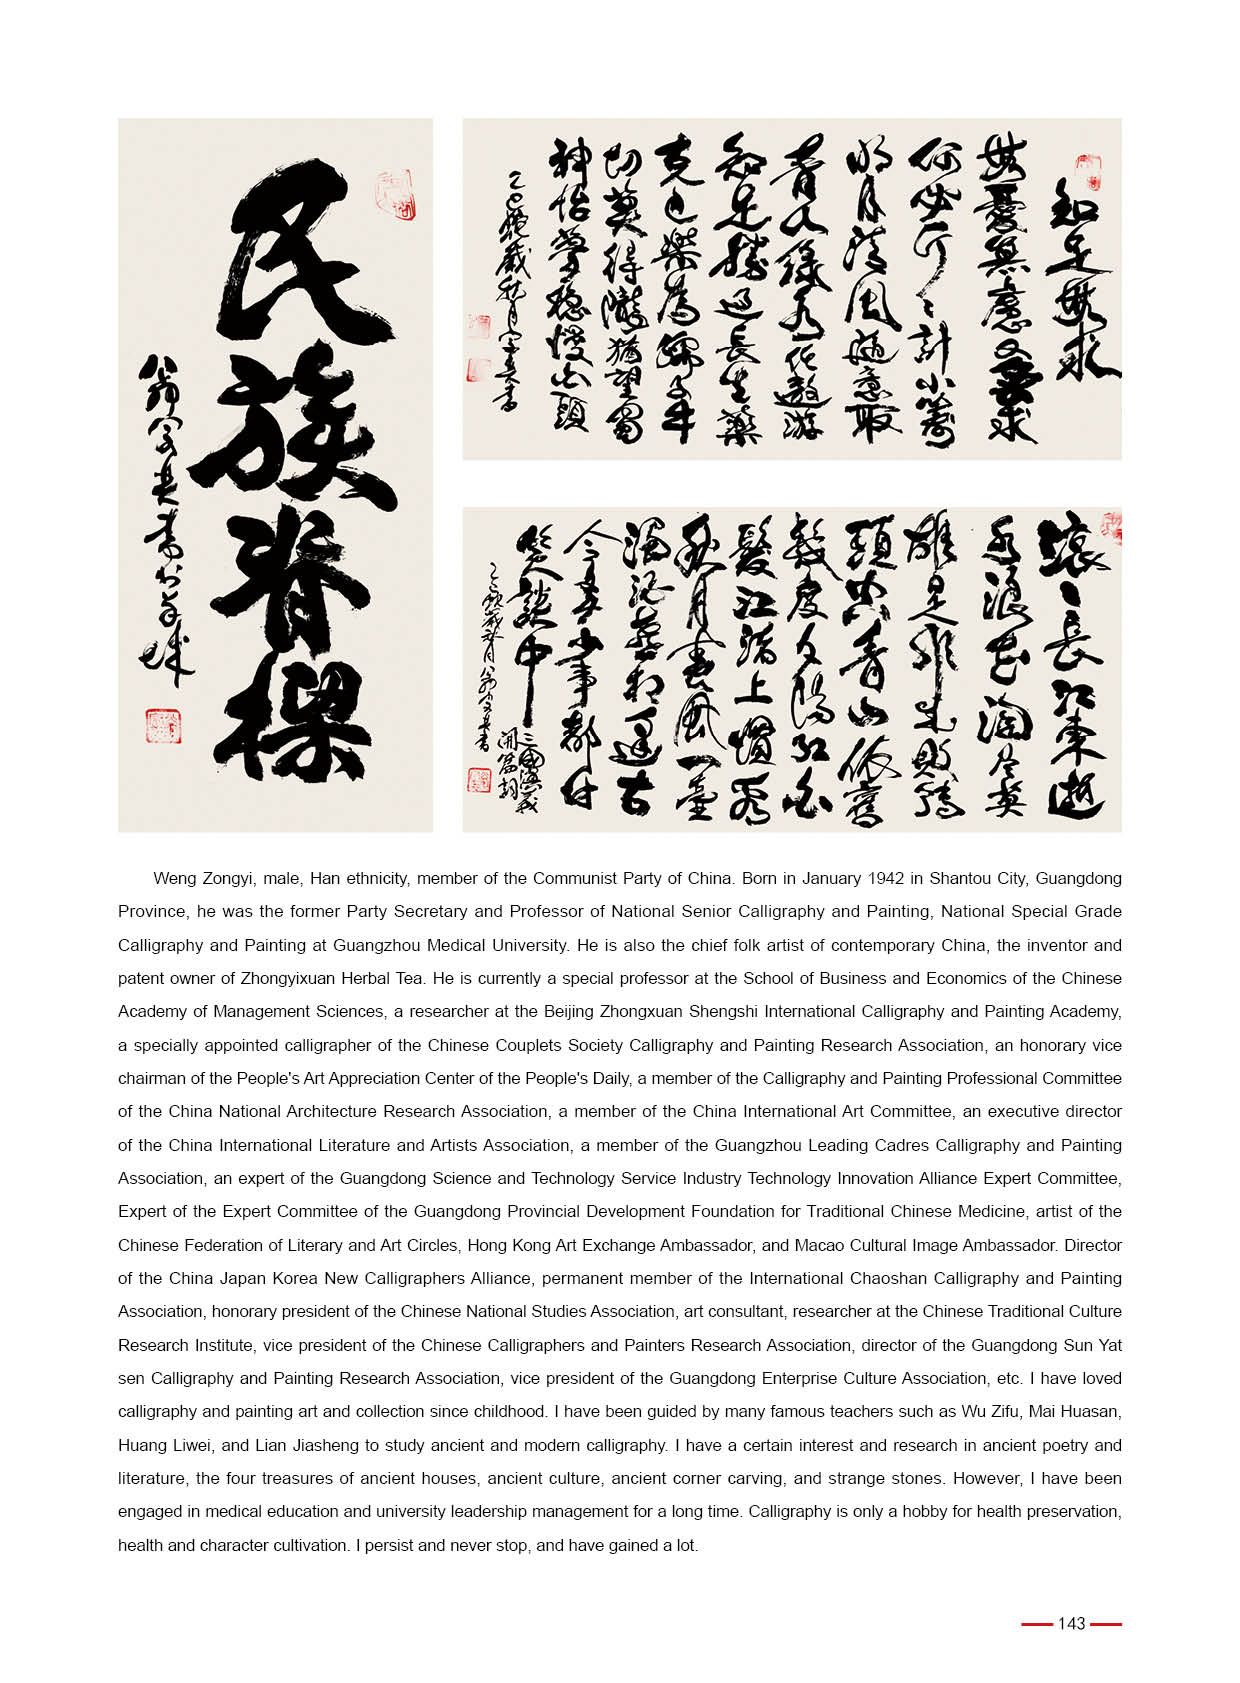 民族脊樑
翁宗奕書於羊城
知足無求
無憂無慮又無求
何必斤々計小籌
明月清風隨意取
青山綠水任遨游
知足勝過長生藥
克己樂為孺子牛
切莫得隴猶望蜀
神怡夢穩慢白頭
滾々長江東逝
水浪花淘盡英
雄是非成敗轉
頭空青山依舊
幾度夕陽紅白
髮江渚上慣看
秋月春風一壺
濁酒喜相逢古
今多少事都付
笑談中
三國演義
開篇詞
Weng Zongyi, male, Han ethnicity, member of the Communist Party of China. Born in January 1942 in Shantou City, Guangdong
Province, he was the former Party Secretary and Professor of National Senior Calligraphy and Painting, National Special Grade
Calligraphy and Painting at Guangzhou Medical University. He is also the chief folk artist of contemporary China, the inventor and
patent owner of Zhongyixuan Herbal Tea. He is currently a special professor at the School of Business and Economics of the Chinese
Academy of Management Sciences, a researcher at the Beijing Zhongxuan Shengshi International Calligraphy and Painting Academy,
a specially appointed calligrapher of the Chinese Couplets Society Calligraphy and Painting Research Association, an honorary vice
chairman of the People's Art Appreciation Center of the People's Daily, a member of the Calligraphy and Painting Professional Committee
of the China National Architecture Research Association, a member of the China International Art Committee, an executive director
of the China International Literature and Artists Association, a member of the Guangzhou Leading Cadres Calligraphy and Painting
Association, an expert of the Guangdong Science and Technology Service Industry Technology Innovation Alliance Expert Committee,
Expert of the Expert Committee of the Guangdong Provincial Development Foundation for Traditional Chinese Medicine, artist of the
Chinese Federation of Literary and Art Circles, Hong Kong Art Exchange Ambassador, and Macao Cultural Image Ambassador. Director
of the China Japan Korea New Calligraphers Alliance, permanent member of the International Chaoshan Calligraphy and Painting
Association, honorary president of the Chinese National Studies Association, art consultant, researcher at the Chinese Traditional Culture
Research Institute, vice president of the Chinese Calligraphers and Painters Research Association, director of the Guangdong Sun Yat
sen Calligraphy and Painting Research Association, vice president of the Guangdong Enterprise Culture Association, etc. I have loved
calligraphy and painting art and collection since childhood. I have been guided by many famous teachers such as Wu Zifu, Mai Huasan,
Huang Liwei, and Lian Jiasheng to study ancient and modern calligraphy. I have a certain interest and research in ancient poetry and
literature, the four treasures of ancient houses, ancient culture, ancient corner carving, and strange stones. However, I have been
engaged in medical education and university leadership management for a long time. Calligraphy is only a hobby for health preservation,
health and character cultivation. I persist and never stop, and have gained a lot.
143